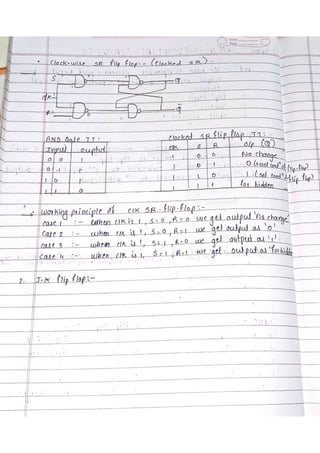 • Clock-wise SR flip flop:- (Clocked SR).
S
Q
clk
R
Q̅
AND Gate TT:-
Clocked SR flip flop TT:-
Input output
clk S R O/P (Q)
0 0 1
1 0 0 No change
0 1 1
1 0 1 0 (reset cond" of flip flop)
1 0 1
1 1 0 1 (set cond" of flip flop)
1 1 0
1 1 1 for bidden
Working principle of clk SR-flip-flop:-
case 1 :- when clk is 1, S=0, R=0 we get output 'No change'
case 2 :- when clk is 1, S=0, R=1 we get output as '0'
case 3 :- when clk is 1, S=1, R=0 we get output as '1'
case 4 :- when clk is 1, S=1, R=1 we get output as 'forbidden'
2. J-K flip flop:-